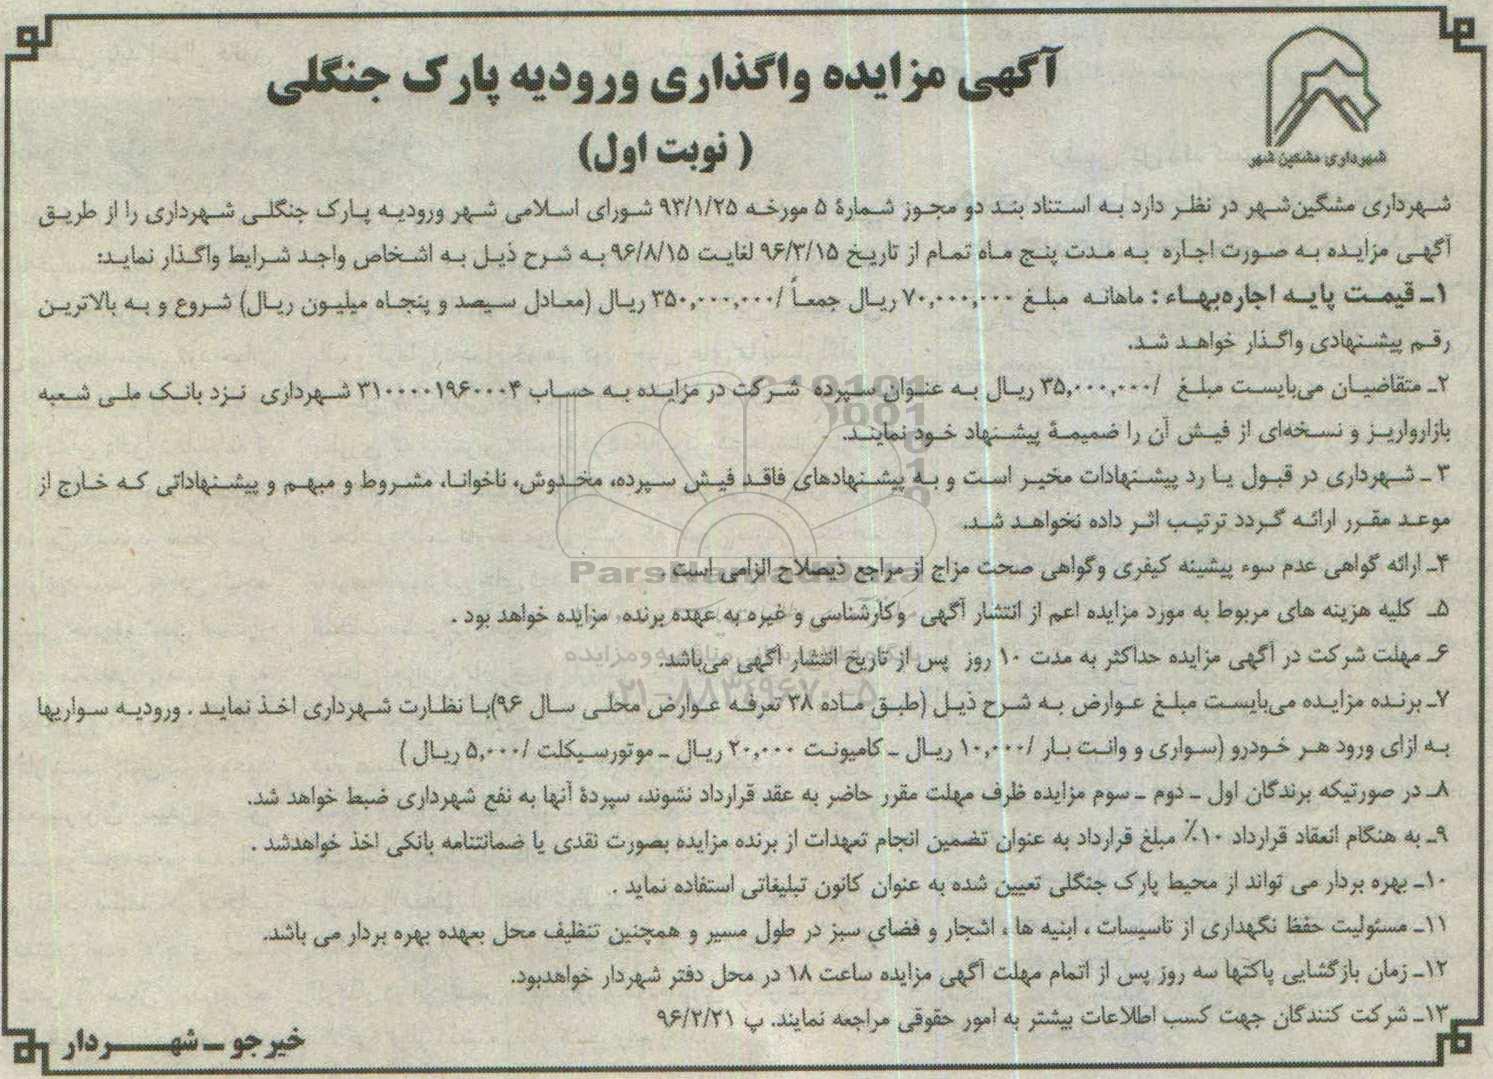 شهرداری مشگین شهر
آگهی مزایده واگذاری ورودیه پارک جنگلی
( نوبت اول)
شهرداری مشگین‌شهر در نظر دارد به استناد بند دو مجوز شمارهٔ ۵ مورخه ۹۳/۱/۲۵ شورای اسلامی شهر ورودیه پارک جنگلی شهرداری را از طریق
آگهی مزایده به صورت اجاره به مدت پنج ماه تمام از تاریخ ۹۶/۳/۱۵ لغایت ۹۶/۸/۱۵ به شرح ذیل به اشخاص واجد شرایط واگذار نماید:
۱ـ قیمت پایه اجاره‌بهاء : ماهانه مبلغ ۷۰,۰۰۰,۰۰۰ ریال جمعاً /۳۵۰,۰۰۰,۰۰۰ ریال (معادل سیصد و پنجاه میلیون ریال) شروع و به بالاترین
رقم پیشنهادی واگذار خواهد شد.
۲ـ متقاضیان می‌بایست مبلغ /۳۵,۰۰۰,۰۰۰ ریال به عنوان سپرده شرکت در مزایده به حساب ۳۱۰۰۰۰۱۹۶۰۰۰۴ شهرداری نزد بانک ملی شعبه
بازارواریز و نسخه‌ای از فیش آن را ضمیمهٔ پیشنهاد خود نمایند.
۳ ـ شهرداری در قبول یا رد پیشنهادات مخیر است و به پیشنهادهای فاقد فیش سپرده، مخدوش، ناخوانا، مشروط و مبهم و پیشنهاداتی که خارج از
موعد مقرر ارائه گردد ترتیب اثر داده نخواهد شد.
۴ـ ارائه گواهی عدم سوء پیشینه کیفری وگواهی صحت مزاج از مراجع ذیصلاح الزامی است .
۵ـ کلیه هزینه های مربوط به مورد مزایده اعم از انتشار آگهی وکارشناسی و غیره به عهده برنده، مزایده خواهد بود .
۶ـ مهلت شرکت در آگهی مزایده حداکثر به مدت ۱۰ روز پس از تاریخ انتشار آگهی می‌باشد.
۷ـ برنده مزایده می‌بایست مبلغ عوارض به شرح ذیل (طبق ماده ۳۸ تعرفه عوارض محلی سال ۹۶)با نظارت شهرداری اخذ نماید . ورودیه سواریها
به ازای ورود هر خودرو (سواری و وانت بار /۱۰,۰۰۰ ریال ـ کامیونت ۲۰,۰۰۰ ریال ـ موتورسیکلت /۵,۰۰۰ ریال )
۸ـ در صورتیکه برندگان اول ـ دوم ـ سوم مزایده ظرف مهلت مقرر حاضر به عقد قرارداد نشوند، سپردهٔ آنها به نفع شهرداری ضبط خواهد شد.
۹ـ به هنگام انعقاد قرارداد ۱۰٪ مبلغ قرارداد به عنوان تضمین انجام تعهدات از برنده مزایده بصورت نقدی یا ضمانتنامه بانکی اخذ خواهدشد .
۱۰ـ بهره بردار می تواند از محیط پارک جنگلی تعیین شده به عنوان کانون تبلیغاتی استفاده نماید .
۱۱ـ مسئولیت حفظ نگهداری از تاسیسات ، ابنیه ها ، اشجار و فضای سبز در طول مسیر و همچنین تنظیف محل بعهده بهره بردار می باشد.
۱۲ـ زمان بازگشایی پاکتها سه روز پس از اتمام مهلت آگهی مزایده ساعت ۱۸ در محل دفتر شهردار خواهدبود.
۱۳ـ شرکت کنندگان جهت کسب اطلاعات بیشتر به امور حقوقی مراجعه نمایند. پ ۹۶/۲/۲۱
خیرجو ـ شهردار